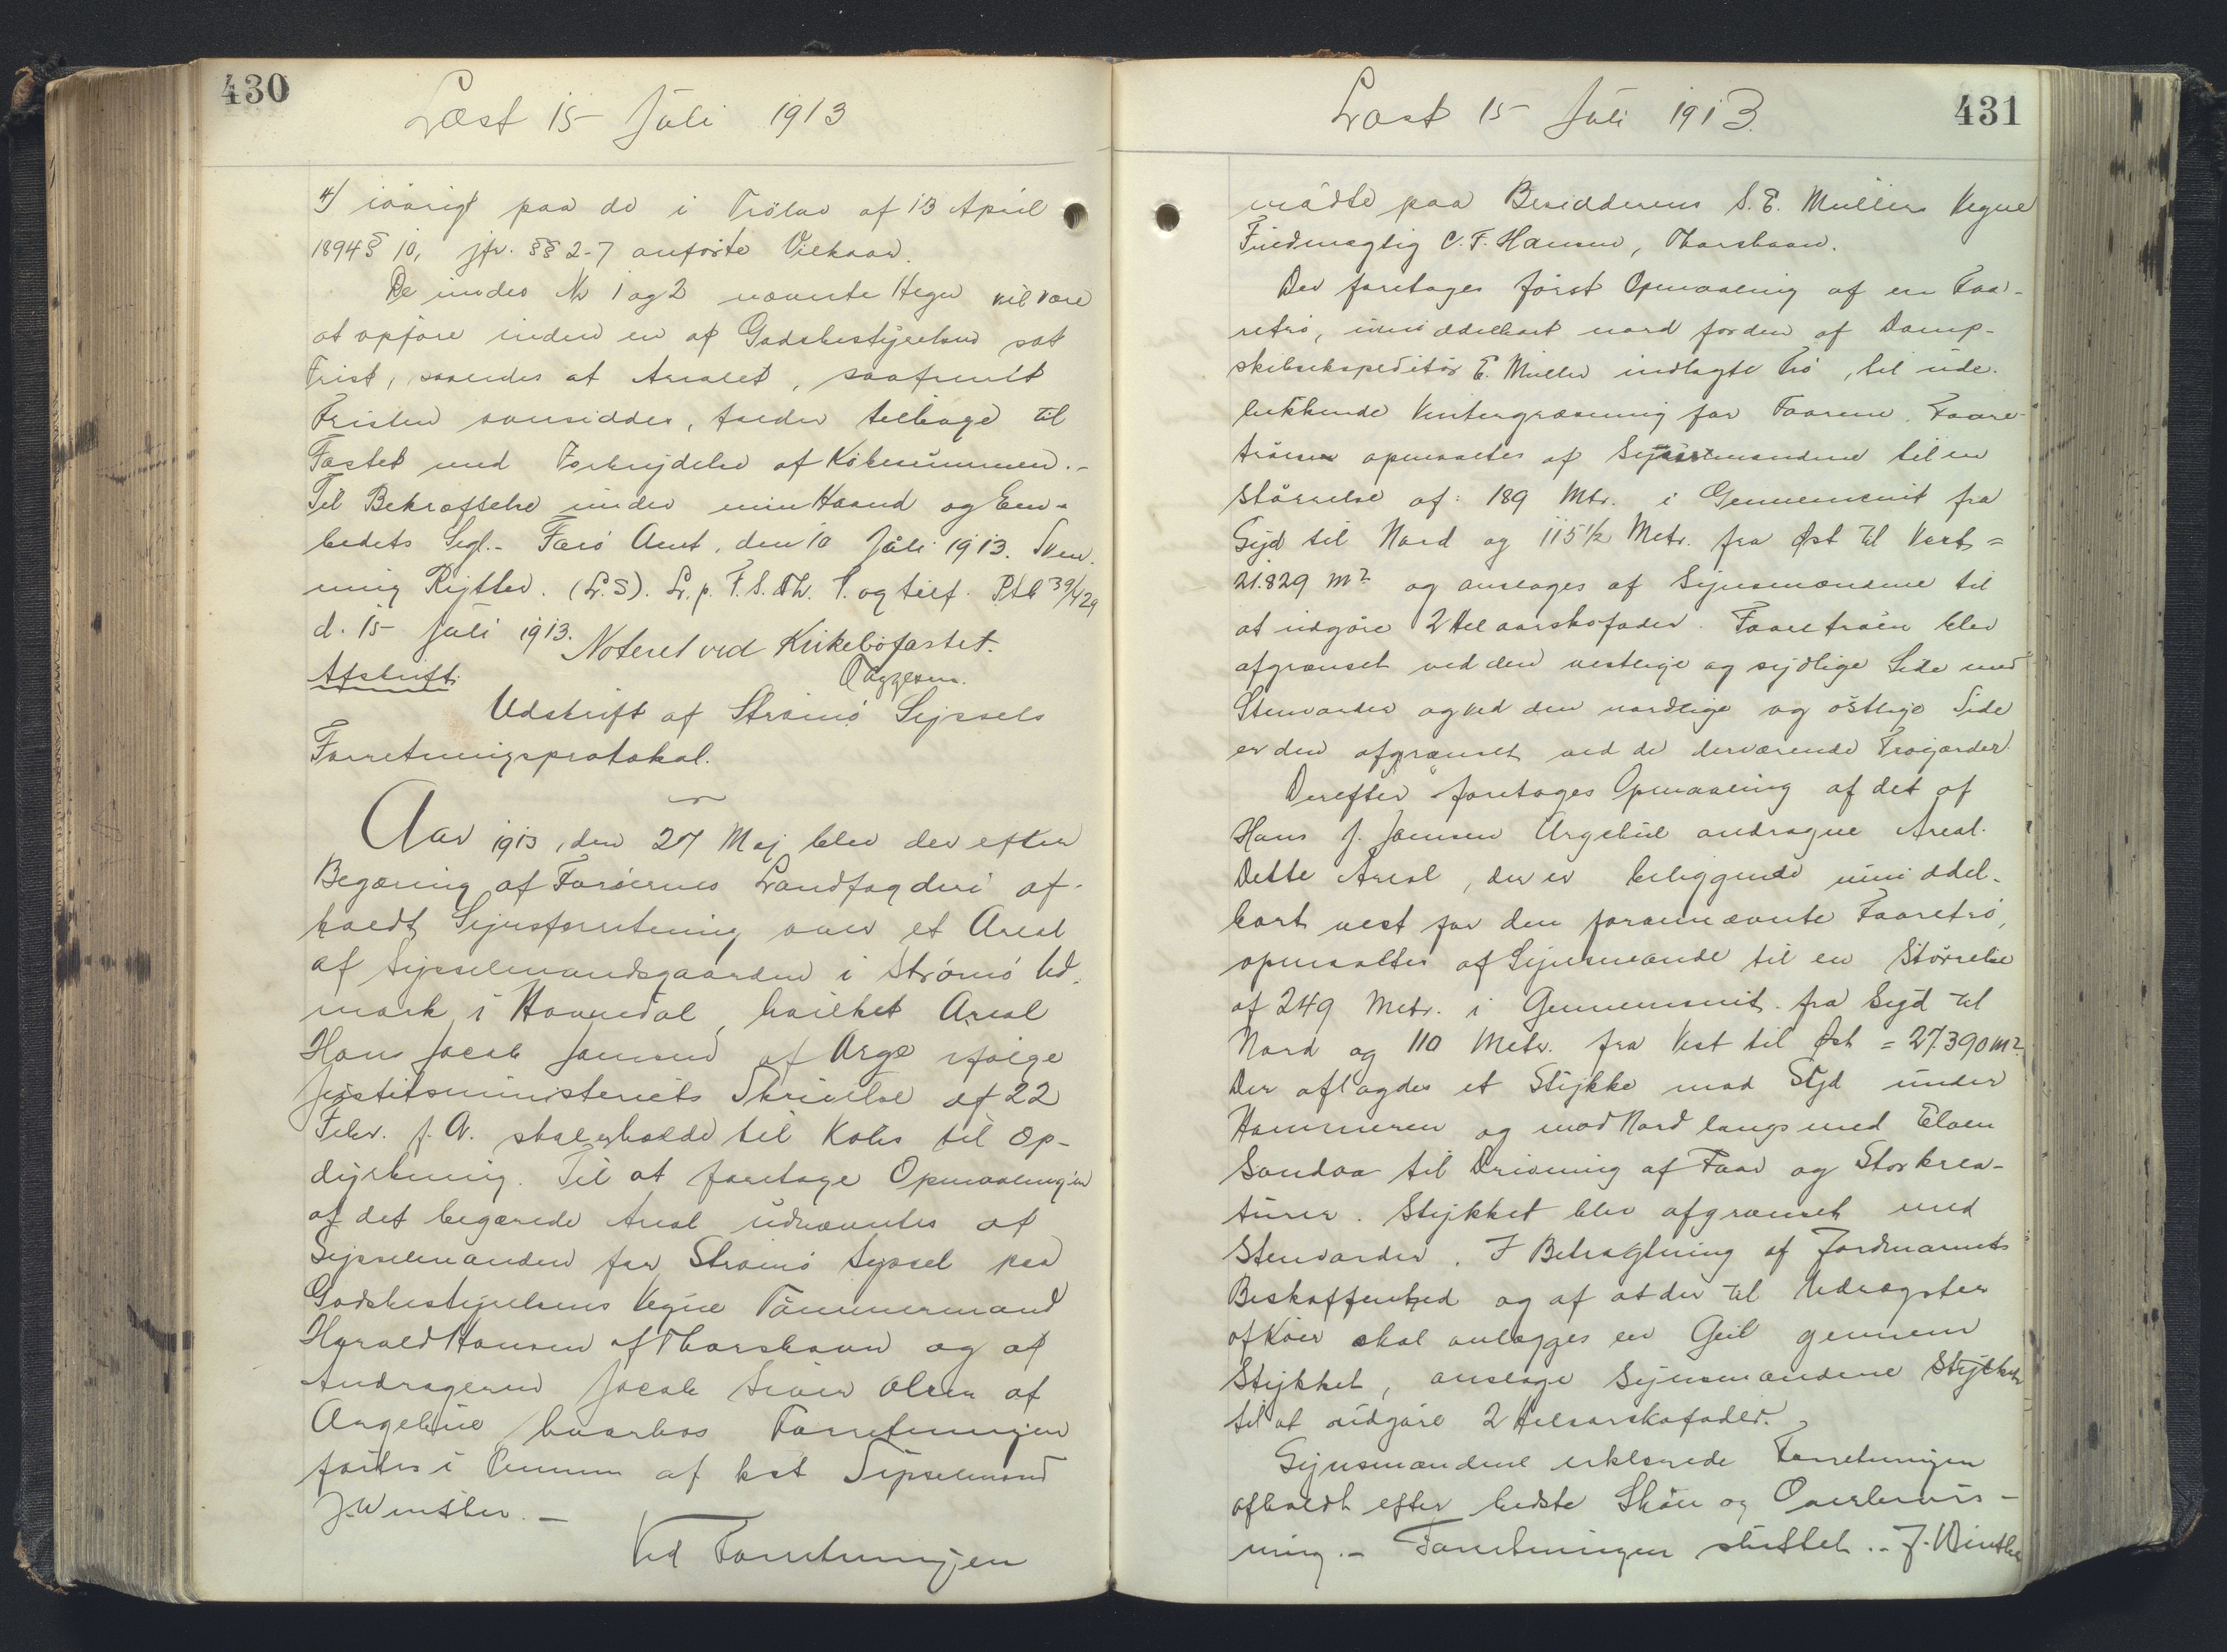 430
Læst 15 Juli 1913
4) iøvrigt paa de i Trølov af 13 April
1894 § 10, jfr. §§ 2-7 anførte Vilkaar.
De under Nr 1 og 2 nævnte Hegn vil være
at opføre inden en af Godsbestyrelsen sat
Frist, saaledes at Arealet, saafremt
Fristen oversiddes, falder tilbage til
Fæstet med Fortrydelse af Købesummen.-
Til Bekræftelse under min Haand og Em-
bedets Segl.- Færø Amt, den 10 Juli 1913. Sven-
ning Rytter. (L.S). L.p. F.S. Th. S. og tilf. Ptl 39/429
d. 15 Juli 1913. Noteret ved Kirkebøfæstet.
Afskrift.
Udskrift af Strømø Syssels
Forretningsprotokol.
Aar 1913, den 27 Maj blev der efter
Begæring af Færøernes Landfogderi af-
holdt Synsforretning over et Areal
af Sysselmandsgaarden i Strømø Ud-
mark i Havnedal, hvilket Areal
Hans Jacob Jensen af Arge ifølge
Justitsministeriets Skrivelse af 22
Febr. f. A. skal erholde til Købs til Op-
dyrkning. Til at foretage Opmaalingen
af det begærede Areal udnævntes af
Sysselmanden for Strømø Syssel paa
Godsbestyrelsens Vegne Tømmermand
Harald Hansen af Thorshavn og af
Andrageren Jacob Olsen af
Argebüe hvorhos Forretningen
førtes i af kst Sysselmand
J. Winther. -
Ved Forretningen
431
Læst 15 Juli 1913.
mødte paa Besidderens S. E. Müllers Vegne
Fuldmægtig C. F. Hansen, Thorshavn.
Der foretages først Opmaaling af en Faa-
retrø, umiddelbart nord for den af Damp-
skibsekspeditør E. Müller indlagte Trø, til ude-
lukkende Vintergræsning for Faarene. Faare-
trøen opmaaltes af Synsmændene til en
Størrelse af: 189 Mtr. i Gennemsnit fra
Syd til Nord og 115 1/2 Metr. fra Øst til Vest =
21.829 m² og ansloges af Synsmændene til
at udgøre 2 Helaarskofoder. Faaretrøen blev
afgrænset ved den vestlige og sydlige Side med
Stenvarder og ved den nordlige og østlige Side
er den afgrænset ved de derværende Trøgarder.
Derefter foretages Opmaaling af det af
Hans J. Jensen Argebüe andragne Areal.
Dette Areal, der er beliggende umiddel-
bart vest for den forannævnte Faaretrø,
opmaaltes af Synsmændene til en Størrelse
af 249 Metr. i Gennemsnit fra Syd til
Nord og 110 Metr. fra Vest til Øst = 27.390 m².
Der aflagdes et Stykke mod Syd under
Hammeren og mod Nord langs med Elven
Sandaa til Drivning af Faar og Storkrea-
turer. Stykket blev afgrænset med
Stenvarder. I Betragtning af Jordmonnets
Beskaffenhed og af at der til Uddrægster
af Køer skal anlægges en Geil gennem
Stykket, ansloge Synsmændene Stykket
til at udgøre 2 Helaarskofoder.
Synsmændene erklærede Forretningen
afholdt efter bedste Skøn og Overbevis-
ning.- Forretningen sluttet.- J. Winther